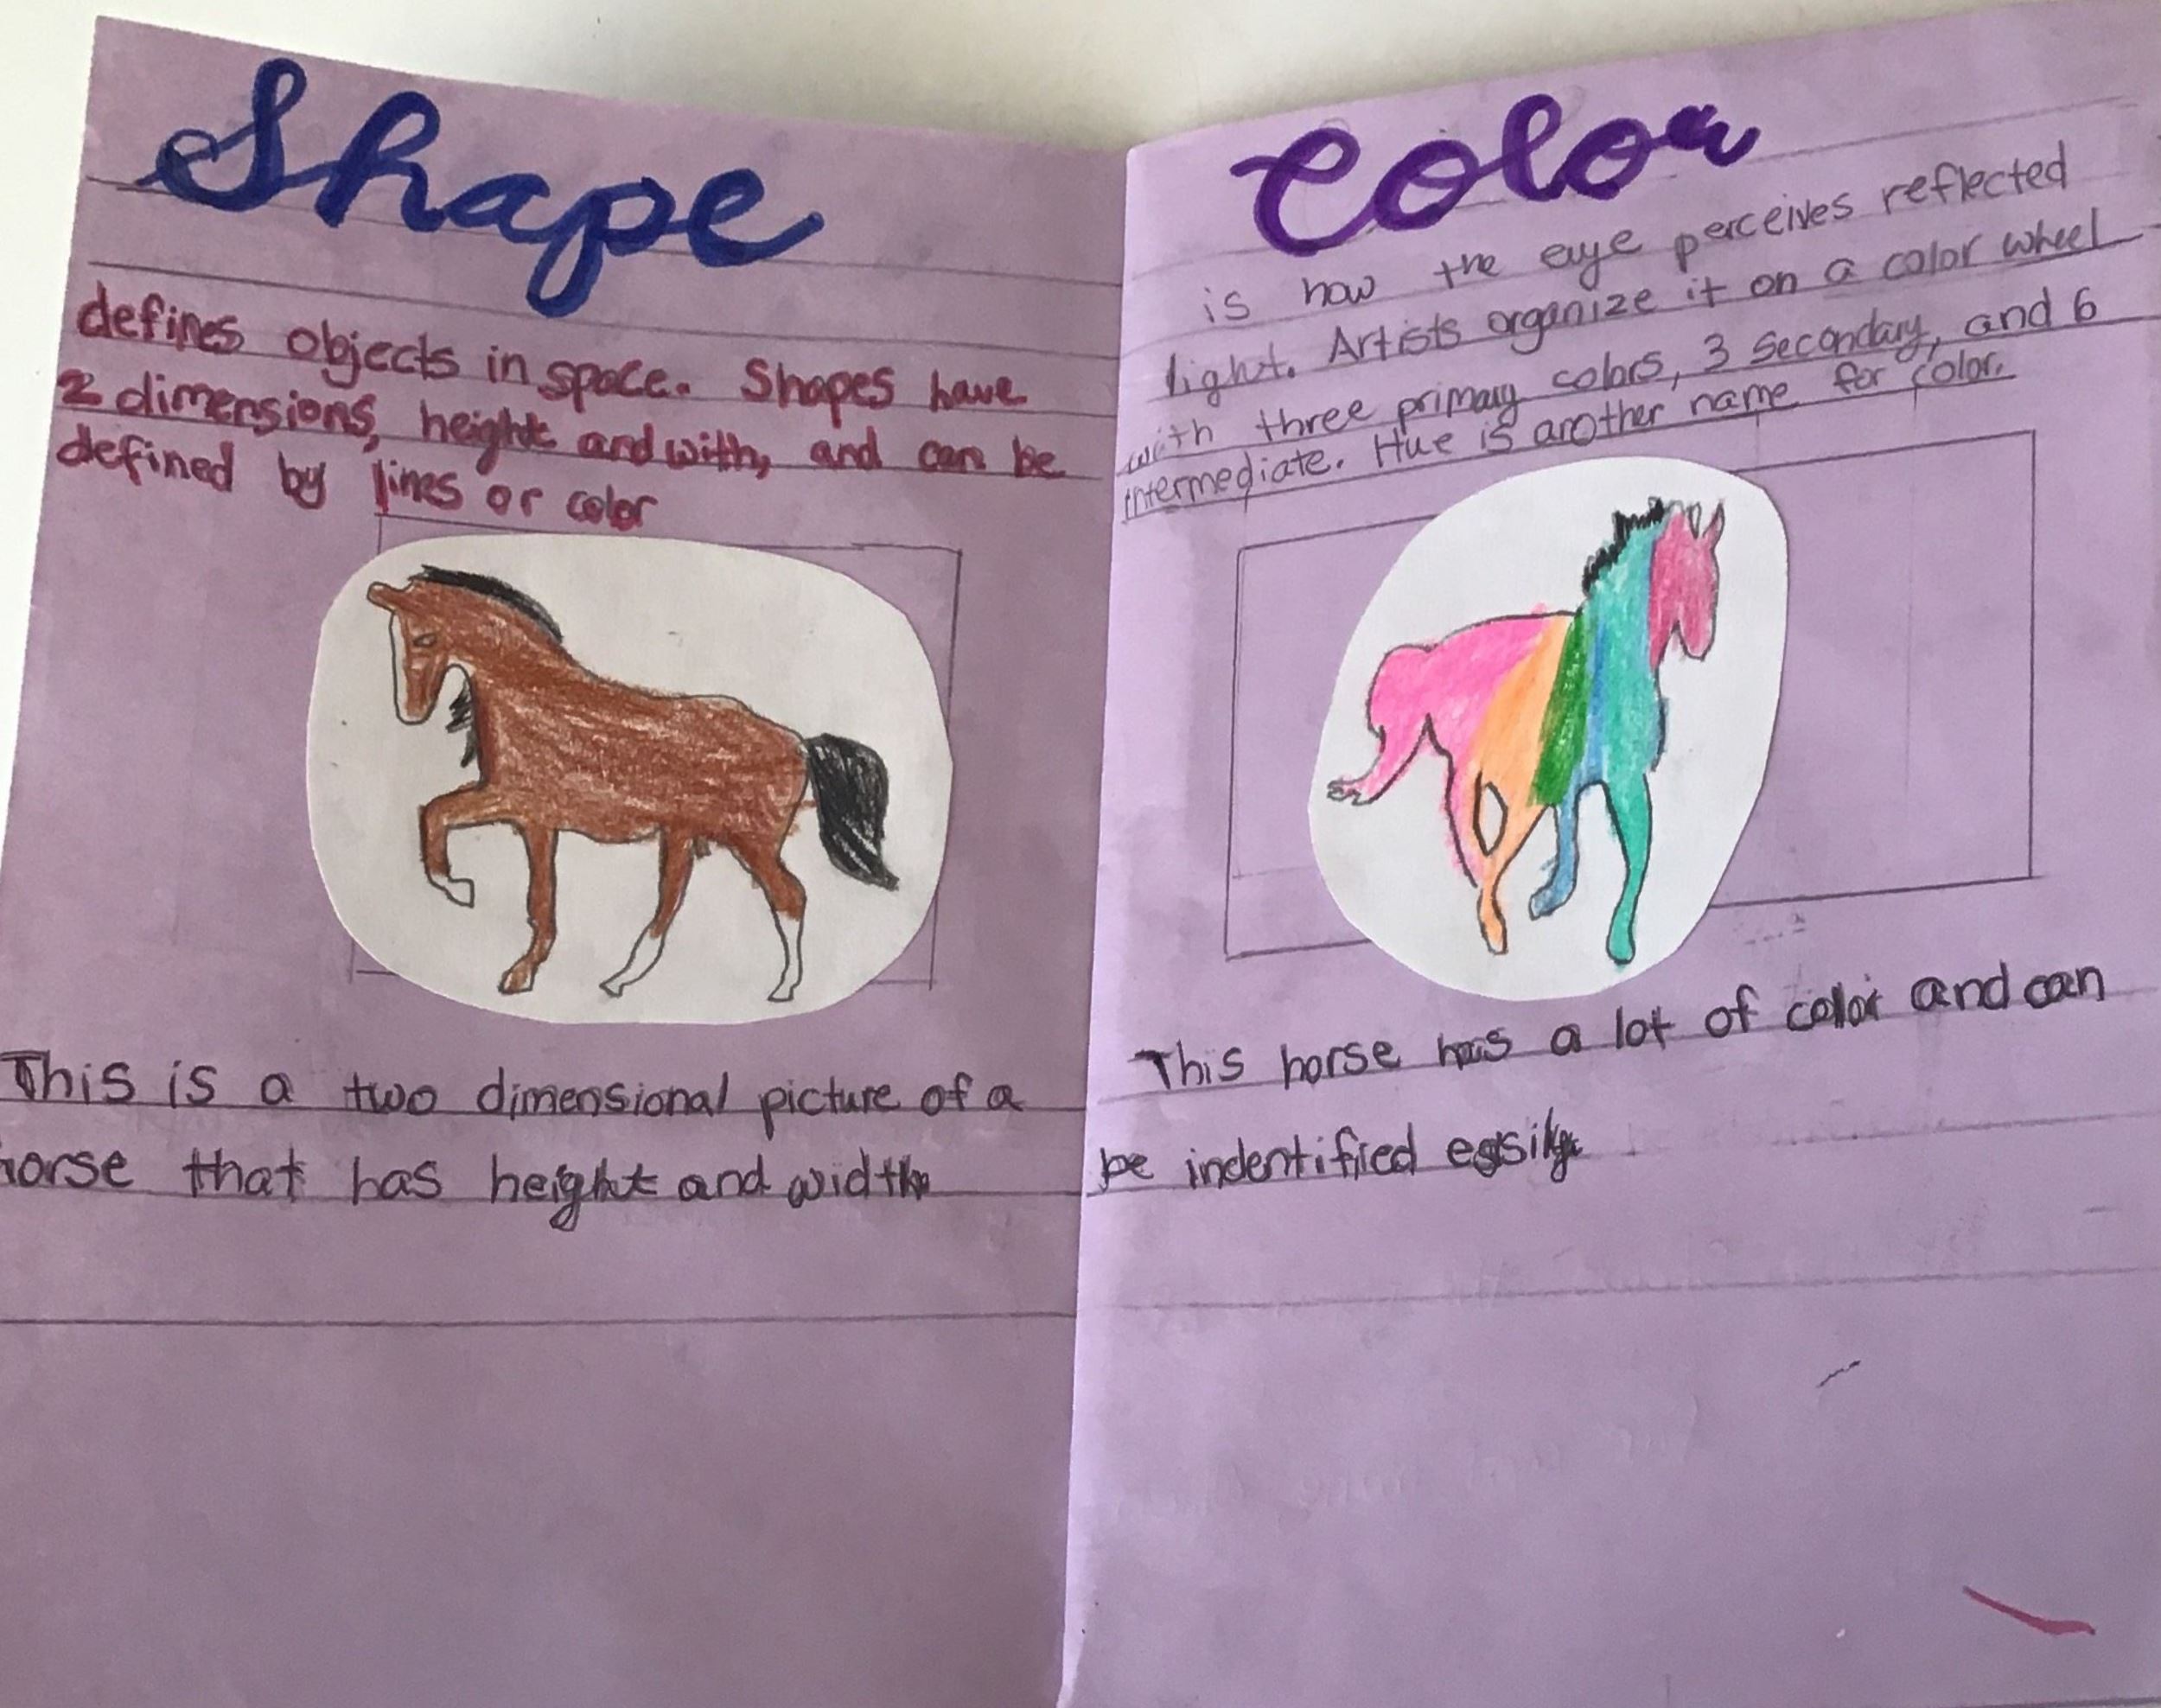 Shape
defines objects in space. Shapes have
2 dimensions, height and with, and can be
defined by lines or color
This is a two dimensional picture of a
horse that has height and width
Color
is how the eye perceives reflected
light. Artists organize it on a color wheel
with three primary colors, 3 secondary, and 6
intermediate. Hue is another name for color.
This horse has a lot of color and can
be indentified easily